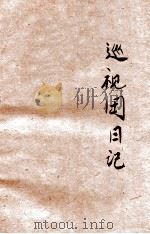 巡视团日记
mtoou.info